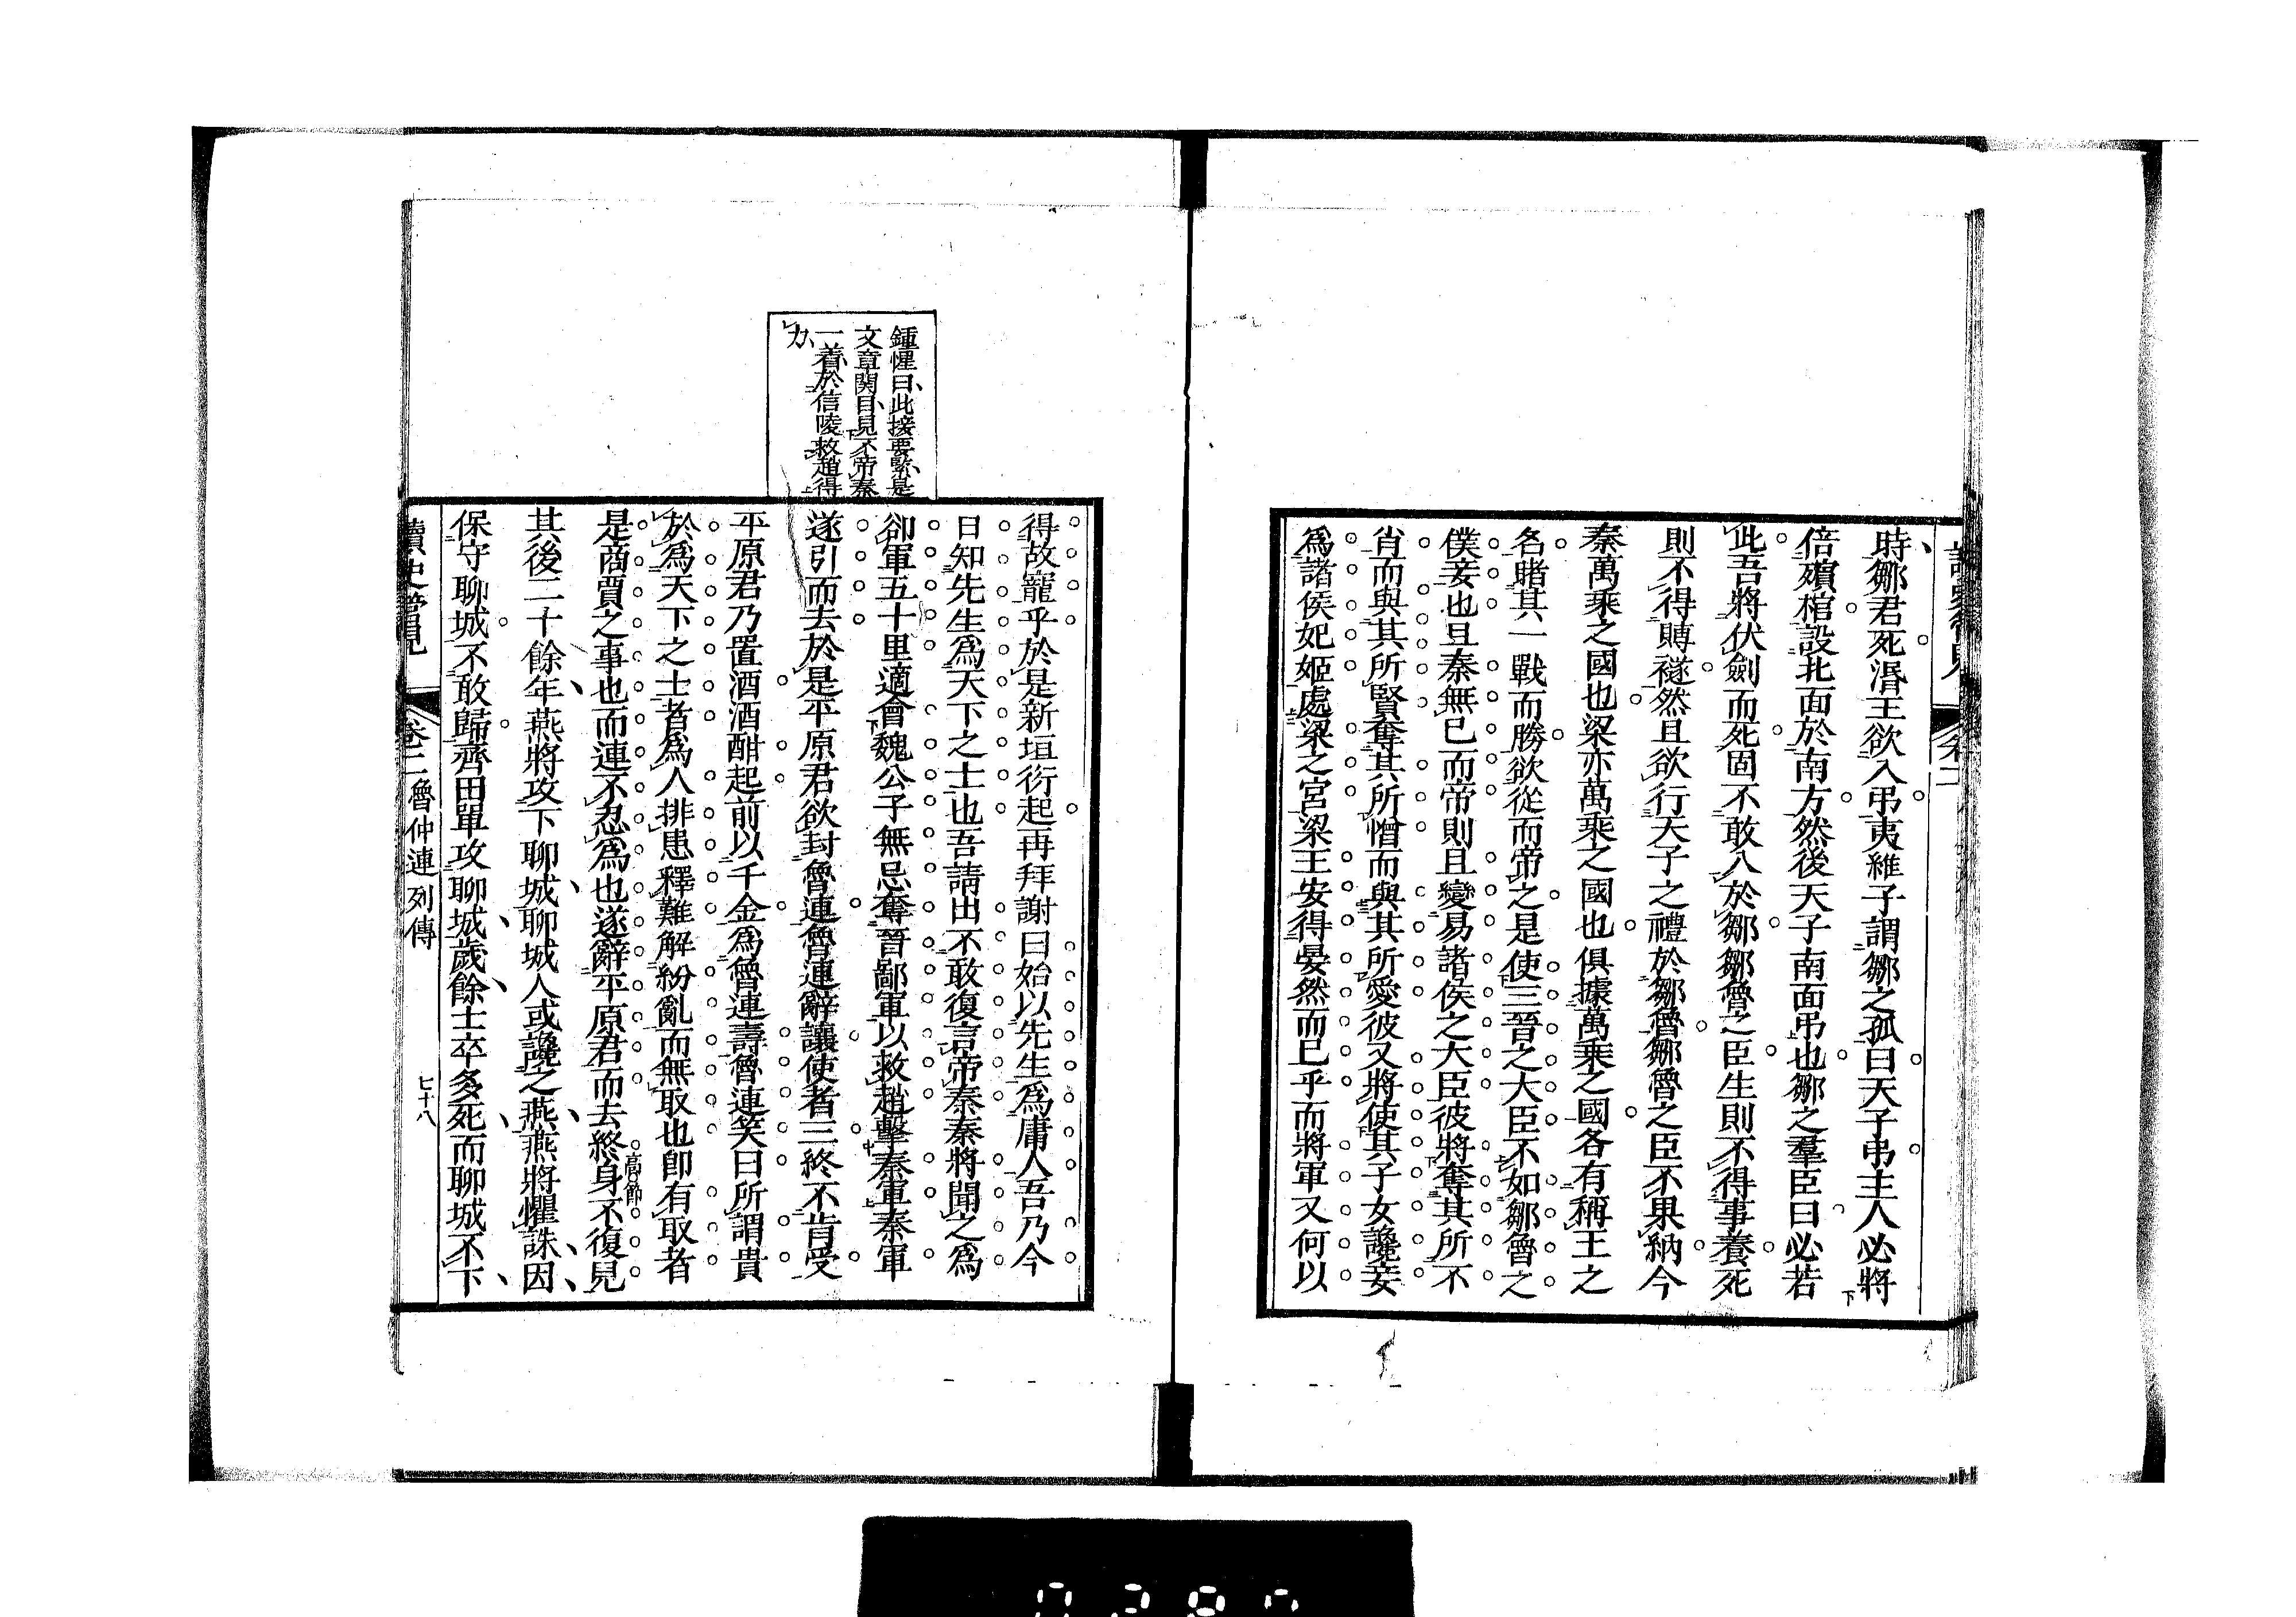 時鄒君死湣王欲入弔夷維子謂鄒之孤曰天子弔主人必將
倍殯棺設北面於南方然後天子南面弔也鄒之羣臣曰必若
此吾將伏劍而死固不敢入於鄒鄒魯之臣生則不得事養死
則不得賻襚然且欲行天子之禮於鄒魯鄒魯之臣不果納今
秦萬乘之國也梁亦萬乘之國也俱據萬乘之國各有稱王之
名睹其一戰而勝欲從而帝之是使三晉之大臣不如鄒魯之
僕妾也且秦無已而帝則且變易諸侯之大臣彼將奪其所不
肖而與其所賢奪其所憎而與其所愛彼又將使其子女讒妾
爲諸侯妃姬處梁之宮梁王安得晏然而已乎而將軍又何以
鍾惺曰此接要緊是
文章関目見不帝秦
一着於信陵救趙得
力
得故寵乎於是新垣衍起再拜謝曰始以先生爲庸人吾乃今
日知先生爲天下之士也吾請出不敢復言帝秦秦將聞之爲
卻軍五十里適會魏公子無忌奪晉鄙軍以救趙擊秦軍秦軍
遂引而去於是平原君欲封魯連魯連辭讓使者三終不肯受
平原君乃置酒酒酣起前以千金爲魯連壽魯連笑曰所謂貴
於爲天下之士者爲人排患釋難解紛亂而無取也卽有取者
是商賈之事也而連不忍爲也遂辭平原君而去終身不復見
高節
其後二十餘年燕將攻下聊城聊城人或讒之燕燕將懼誅因
保守聊城不敢歸齊田單攻聊城歲餘士卒多死而聊城不下
讀史管見 卷二 魯仲連列傳 七十八